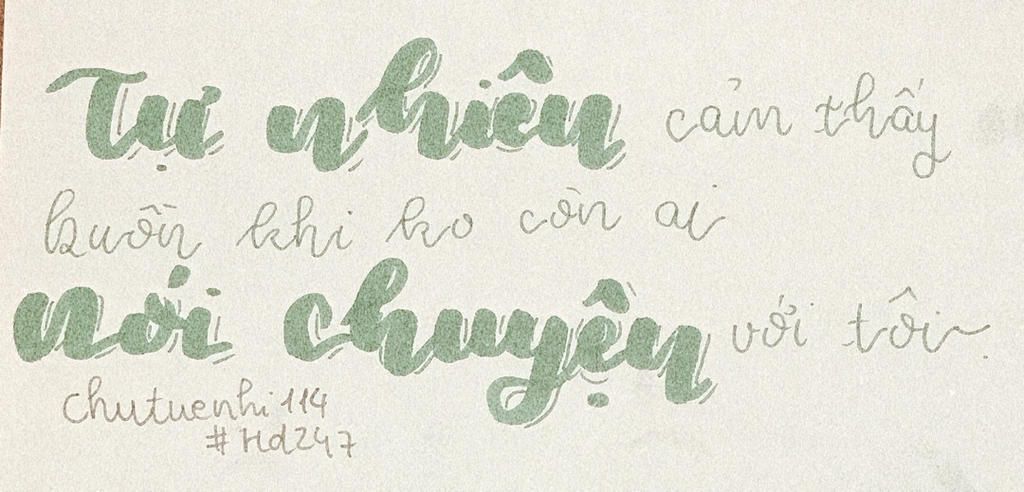 Tự nhiên cảm thấy
buồn khi ko còn ai
nói chuyện với tôi.
chutuenhi114
#Hd247